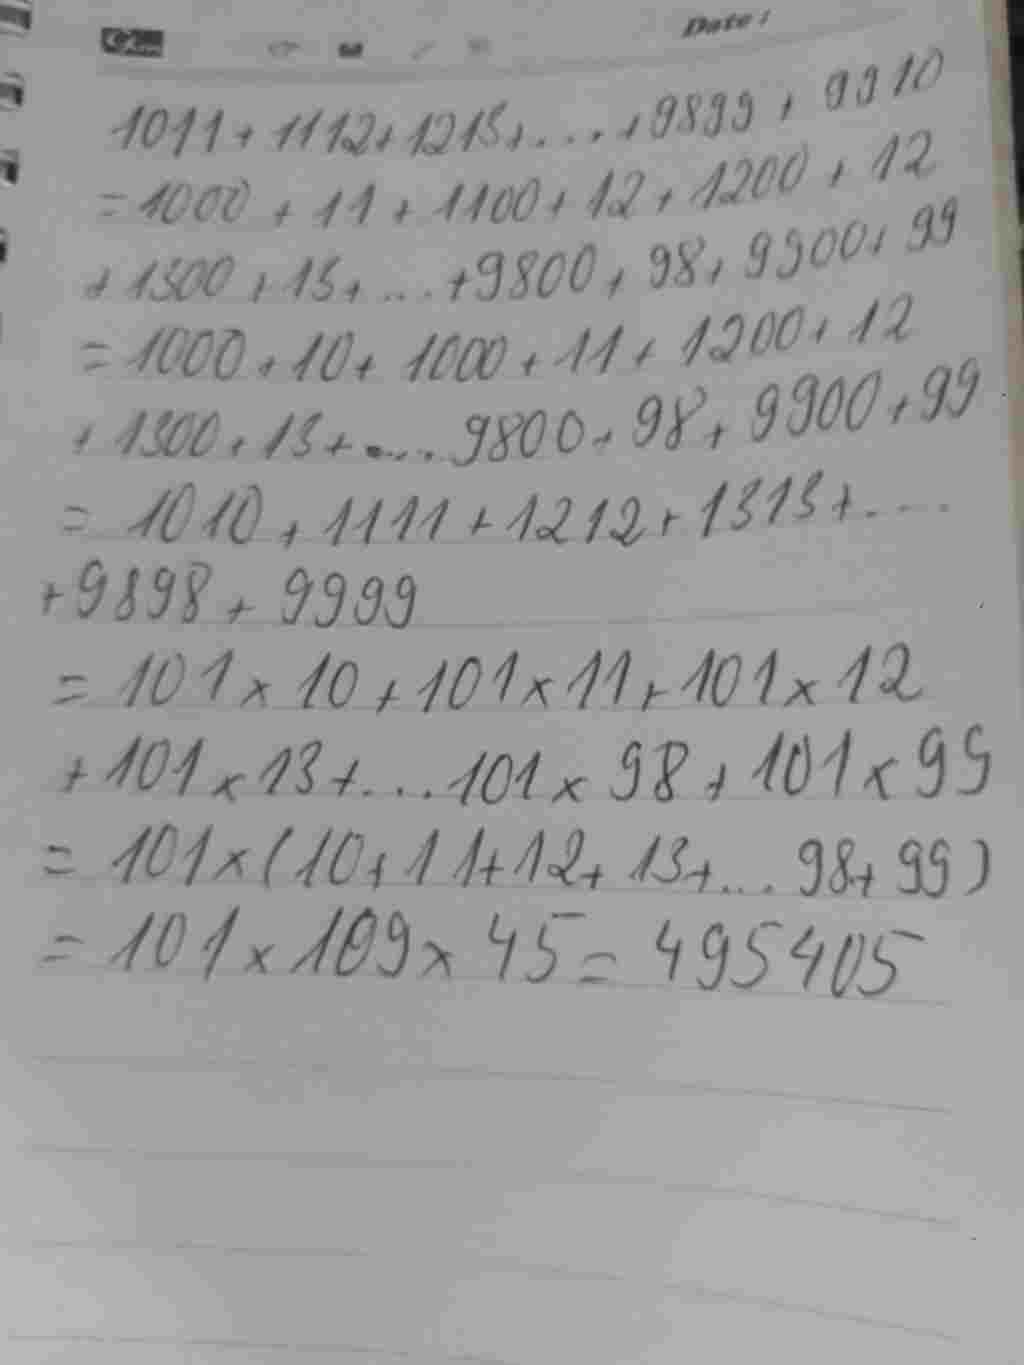 Date :
1011 + 1112 + 1213 + .... + 9899 + 9910
= 1000 + 11 + 1100 + 12 + 1200 + 12
+ 1300 + 13 + ... + 9800 + 98 + 9900 + 99
= 1000 + 10 + 1000 + 11 + 1200 + 12
+ 1300 + 13 + .... 9800 + 98 + 9900 + 99
= 1010 + 1111 + 1212 + 1313 + ....
+ 9898 + 9999
= 101 x 10 + 101 x 11 + 101 x 12
+ 101 x 13 + ... 101 x 98 + 101 x 99
= 101 x (10 + 11 + 12 + 13 + ... 98 + 99)
= 101 x 109 x 45 = 495405